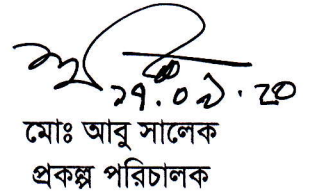 ২৭.০৯.২০
মোঃ আবু সালেক
প্রকল্প পরিচালক